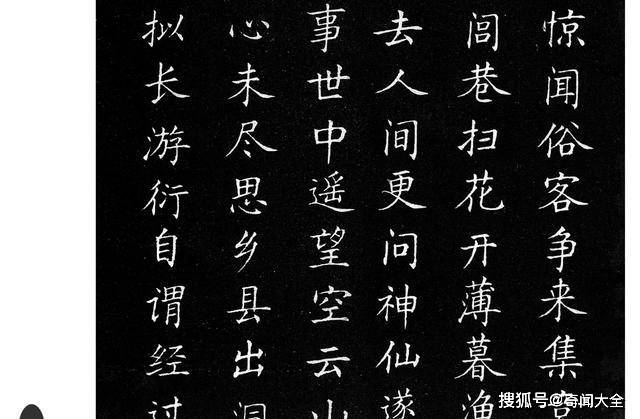 惊闻俗客争来集
闾巷扫花开薄暮渔
去人间更问神仙遂
事世中遥望空云山
心未尽思乡县出洞
拟长游衍自谓经过
搜狐号@奇闻大全